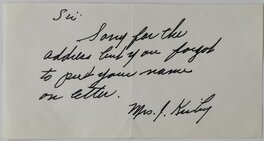 Sir:
Sorry for the
address but you forgot
to put your name
on letter.
Mrs. J. Kirby